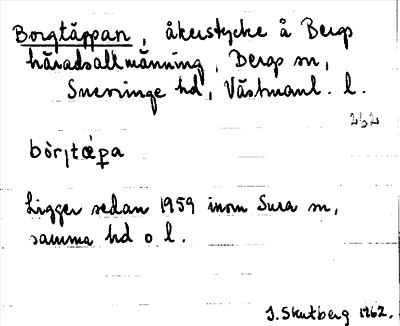 Borgtäppan, åkerstycke å Bergs
häradsallmänning, Bergs sn,
Snevringe hd, Västmanl. l.
262
bòr₍tǽpa
Ligger sedan 1959 inom Sura sn,
samma hd o l.
J. Skutberg 1962.